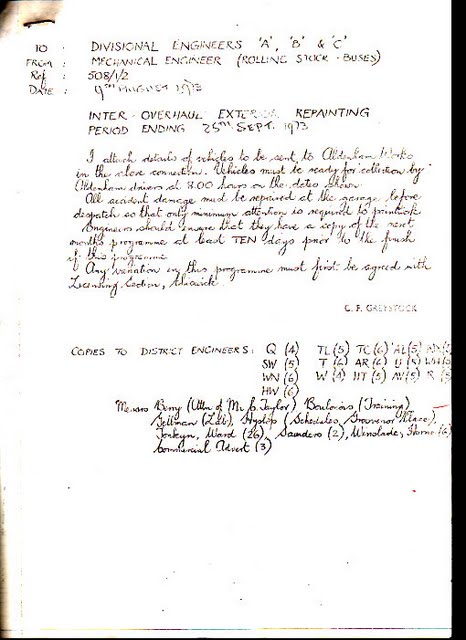 TO : DIVISIONAL ENGINEERS 'A', 'B' & 'C'
FROM : MECHANICAL ENGINEER (ROLLING STOCK - BUSES)
Ref : 508/1/2
DATE : 9TH AUGUST 1973
INTER-OVERHAUL EXTERIOR REPAINTING
PERIOD ENDING 25TH SEPT. 1973
I attach details of vehicles to be sent to Aldenham Works
in the above connection. Vehicles must be ready for collection by
Aldenham drivers at 8.00 hours on the dates shown.
All accident damage must be repaired at the garage before
despatch so that only minimum attention is required to
Engineers should ensure that they have a copy of the next
month's programme at least TEN days prior to the finish
of this programme
Any variation in this programme must first be agreed with
Licensing Section, Chiswick.
C. F. GREYSTOCK
COPIES TO DISTRICT ENGINEERS: Q (4) TL (5) TC (6) AL (5)
SW (5) T (6) AR (6)
WN (6) W (4) HT (5) AV (5) R
HW (6)
Messrs Berry (Attn of Mr. J. Taylor) (Training)
(Lab), Hyslop (Schedules, Grosvenor Place),
Ward (26), Saunders (2), Winslade, Horne (6)
Commercial Advert (3)